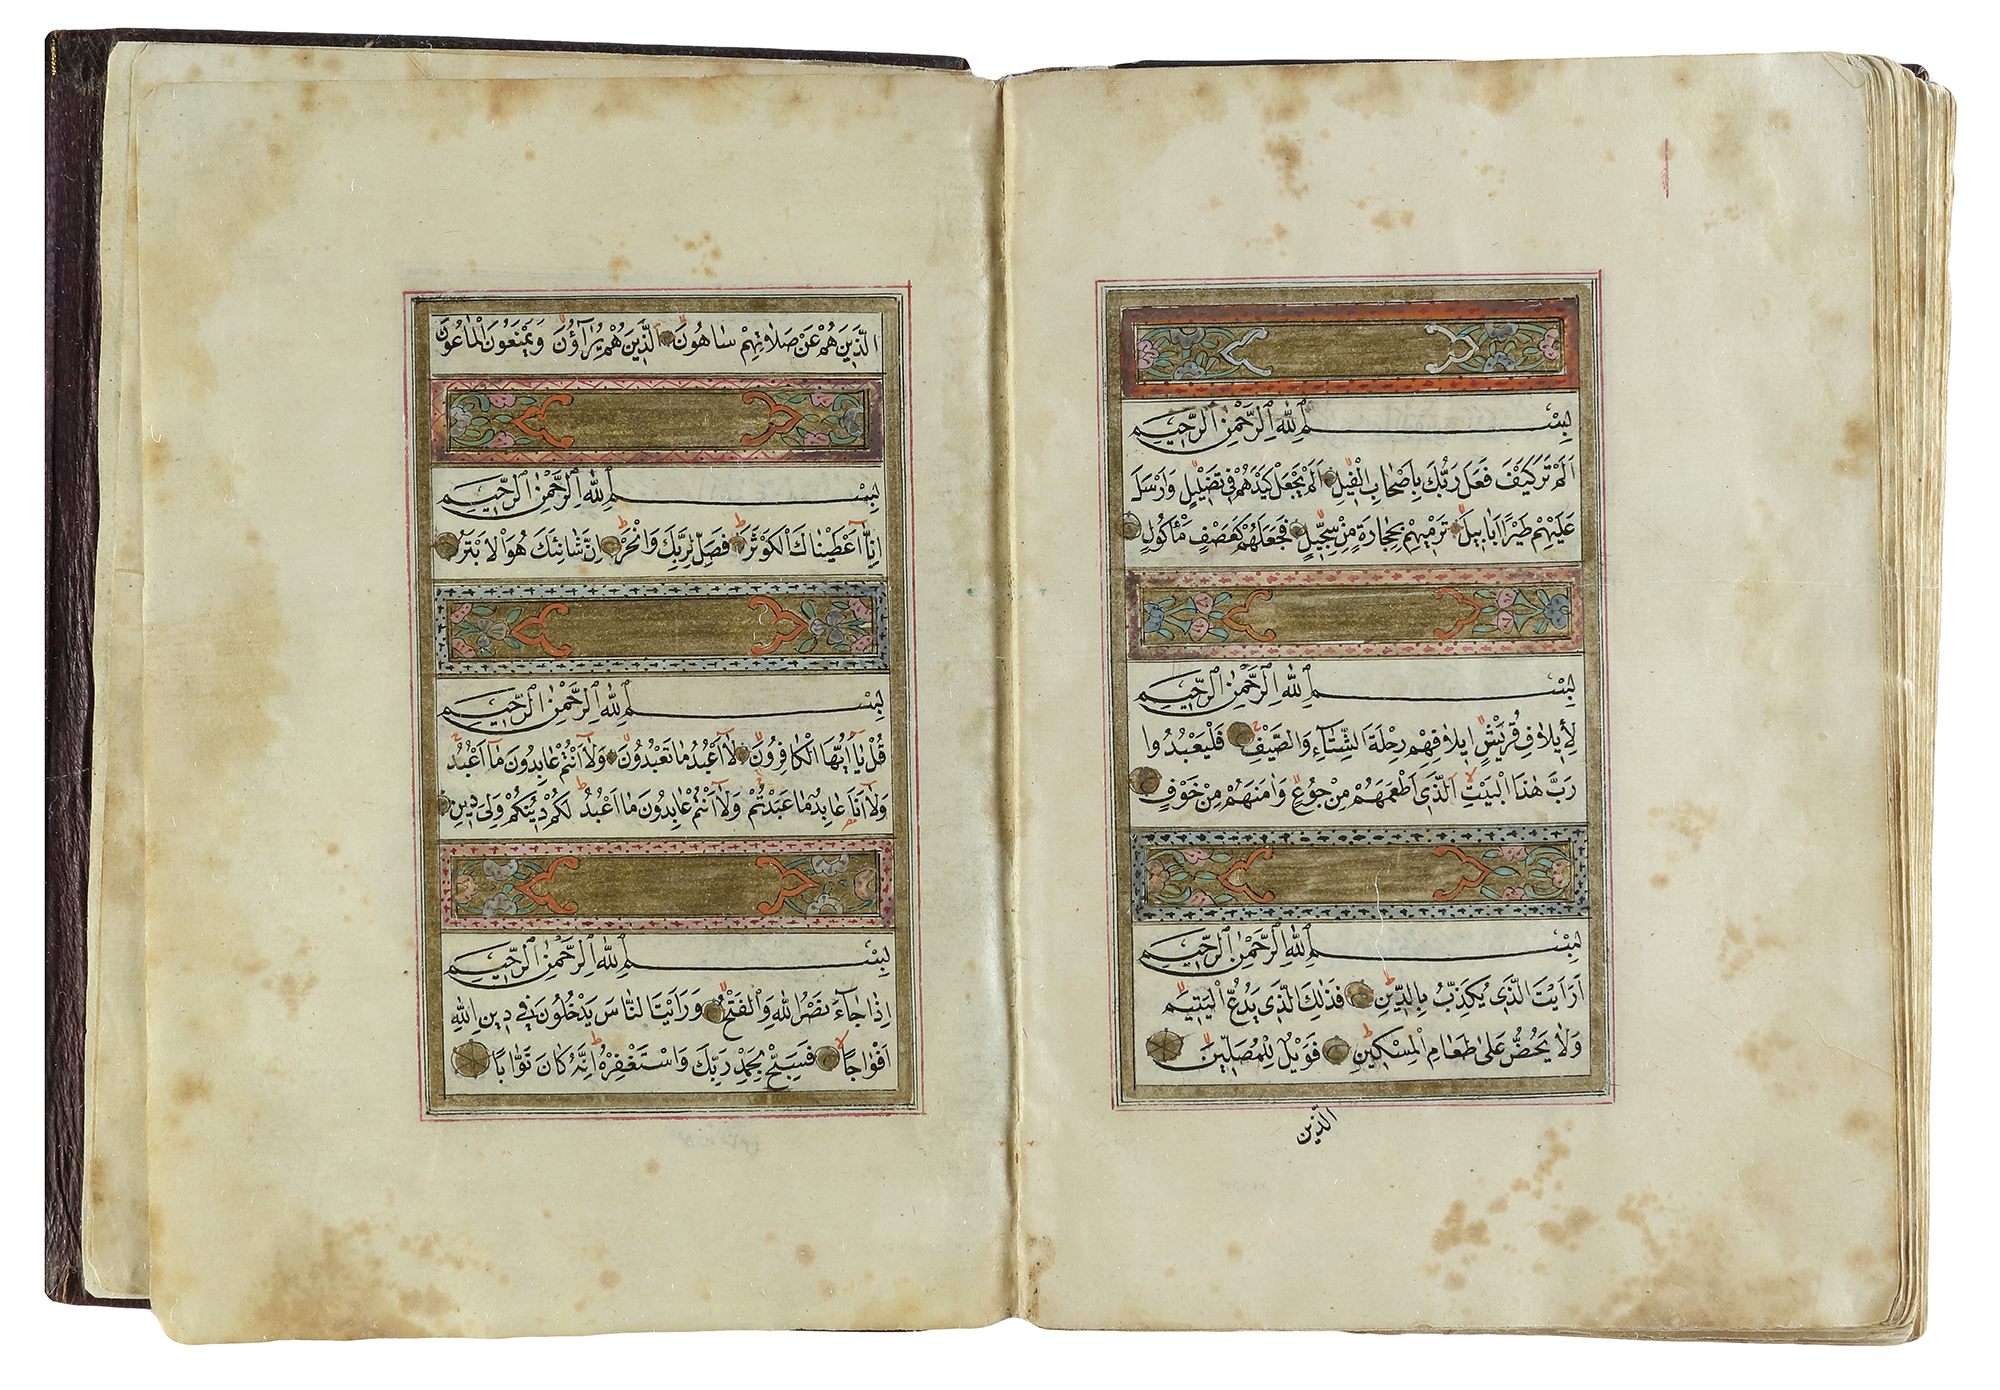 بِسْمِ اللهِ الرَّحْمٰنِ الرَّحِيمِ
اَلَمْ تَرَ كَيْفَ فَعَلَ رَبُّكَ بِاَصْحَابِ الْفِيلِ اَلَمْ يَجْعَلْ كَيْدَهُمْ فِي تَضْلِيلٍ وَاَرْسَلَ
عَلَيْهِمْ طَيْرًا اَبَابِيلَ تَرْمِيهِمْ بِحِجَارَةٍ مِنْ سِجِّيلٍ فَجَعَلَهُمْ كَعَصْفٍ مَأْكُولٍ
بِسْمِ اللهِ الرَّحْمٰنِ الرَّحِيمِ
لِاِيلَافِ قُرَيْشٍ اِيلَافِهِمْ رِحْلَةَ الشِّتَآءِ وَالصَّيْفِ فَلْيَعْبُدُوا
رَبَّ هٰذَا الْبَيْتِ اَلَّذِي اَطْعَمَهُمْ مِنْ جُوعٍ وَاٰمَنَهُمْ مِنْ خَوْفٍ
بِسْمِ اللهِ الرَّحْمٰنِ الرَّحِيمِ
اَرَاَيْتَ الَّذِي يُكَذِّبُ بِالدِّينِ فَذٰلِكَ الَّذِي يَدُعُّ الْيَتِيمَ
وَلَا يَحُضُّ عَلٰى طَعَامِ الْمِسْكِينِ فَوَيْلٌ لِلْمُصَلِّينَ
الذين
اَلَّذِينَ هُمْ عَنْ صَلَاتِهِمْ سَاهُونَ اَلَّذِينَ هُمْ يُرَآؤُنَ وَيَمْنَعُونَ الْمَاعُونَ
بِسْمِ اللهِ الرَّحْمٰنِ الرَّحِيمِ
اِنَّآ اَعْطَيْنَاكَ الْكَوْثَرَ فَصَلِّ لِرَبِّكَ وَانْحَرْ اِنَّ شَانِئَكَ هُوَ الْاَبْتَرُ
بِسْمِ اللهِ الرَّحْمٰنِ الرَّحِيمِ
قُلْ يَآ اَيُّهَا الْكَافِرُونَ لَآ اَعْبُدُ مَا تَعْبُدُونَ وَلَآ اَنْتُمْ عَابِدُونَ مَآ اَعْبُدُ
وَلَآ اَنَا۬ عَابِدٌ مَا عَبَدْتُمْ وَلَآ اَنْتُمْ عَابِدُونَ مَآ اَعْبُدُ لَكُمْ دِينُكُمْ وَلِيَ دِينِ
بِسْمِ اللهِ الرَّحْمٰنِ الرَّحِيمِ
اِذَا جَآءَ نَصْرُ اللهِ وَالْفَتْحُ وَرَاَيْتَ النَّاسَ يَدْخُلُونَ فِي دِينِ اللهِ
اَفْوَاجًا فَسَبِّحْ بِحَمْدِ رَبِّكَ وَاسْتَغْفِرْهُ اِنَّهُ كَانَ تَوَّابًا